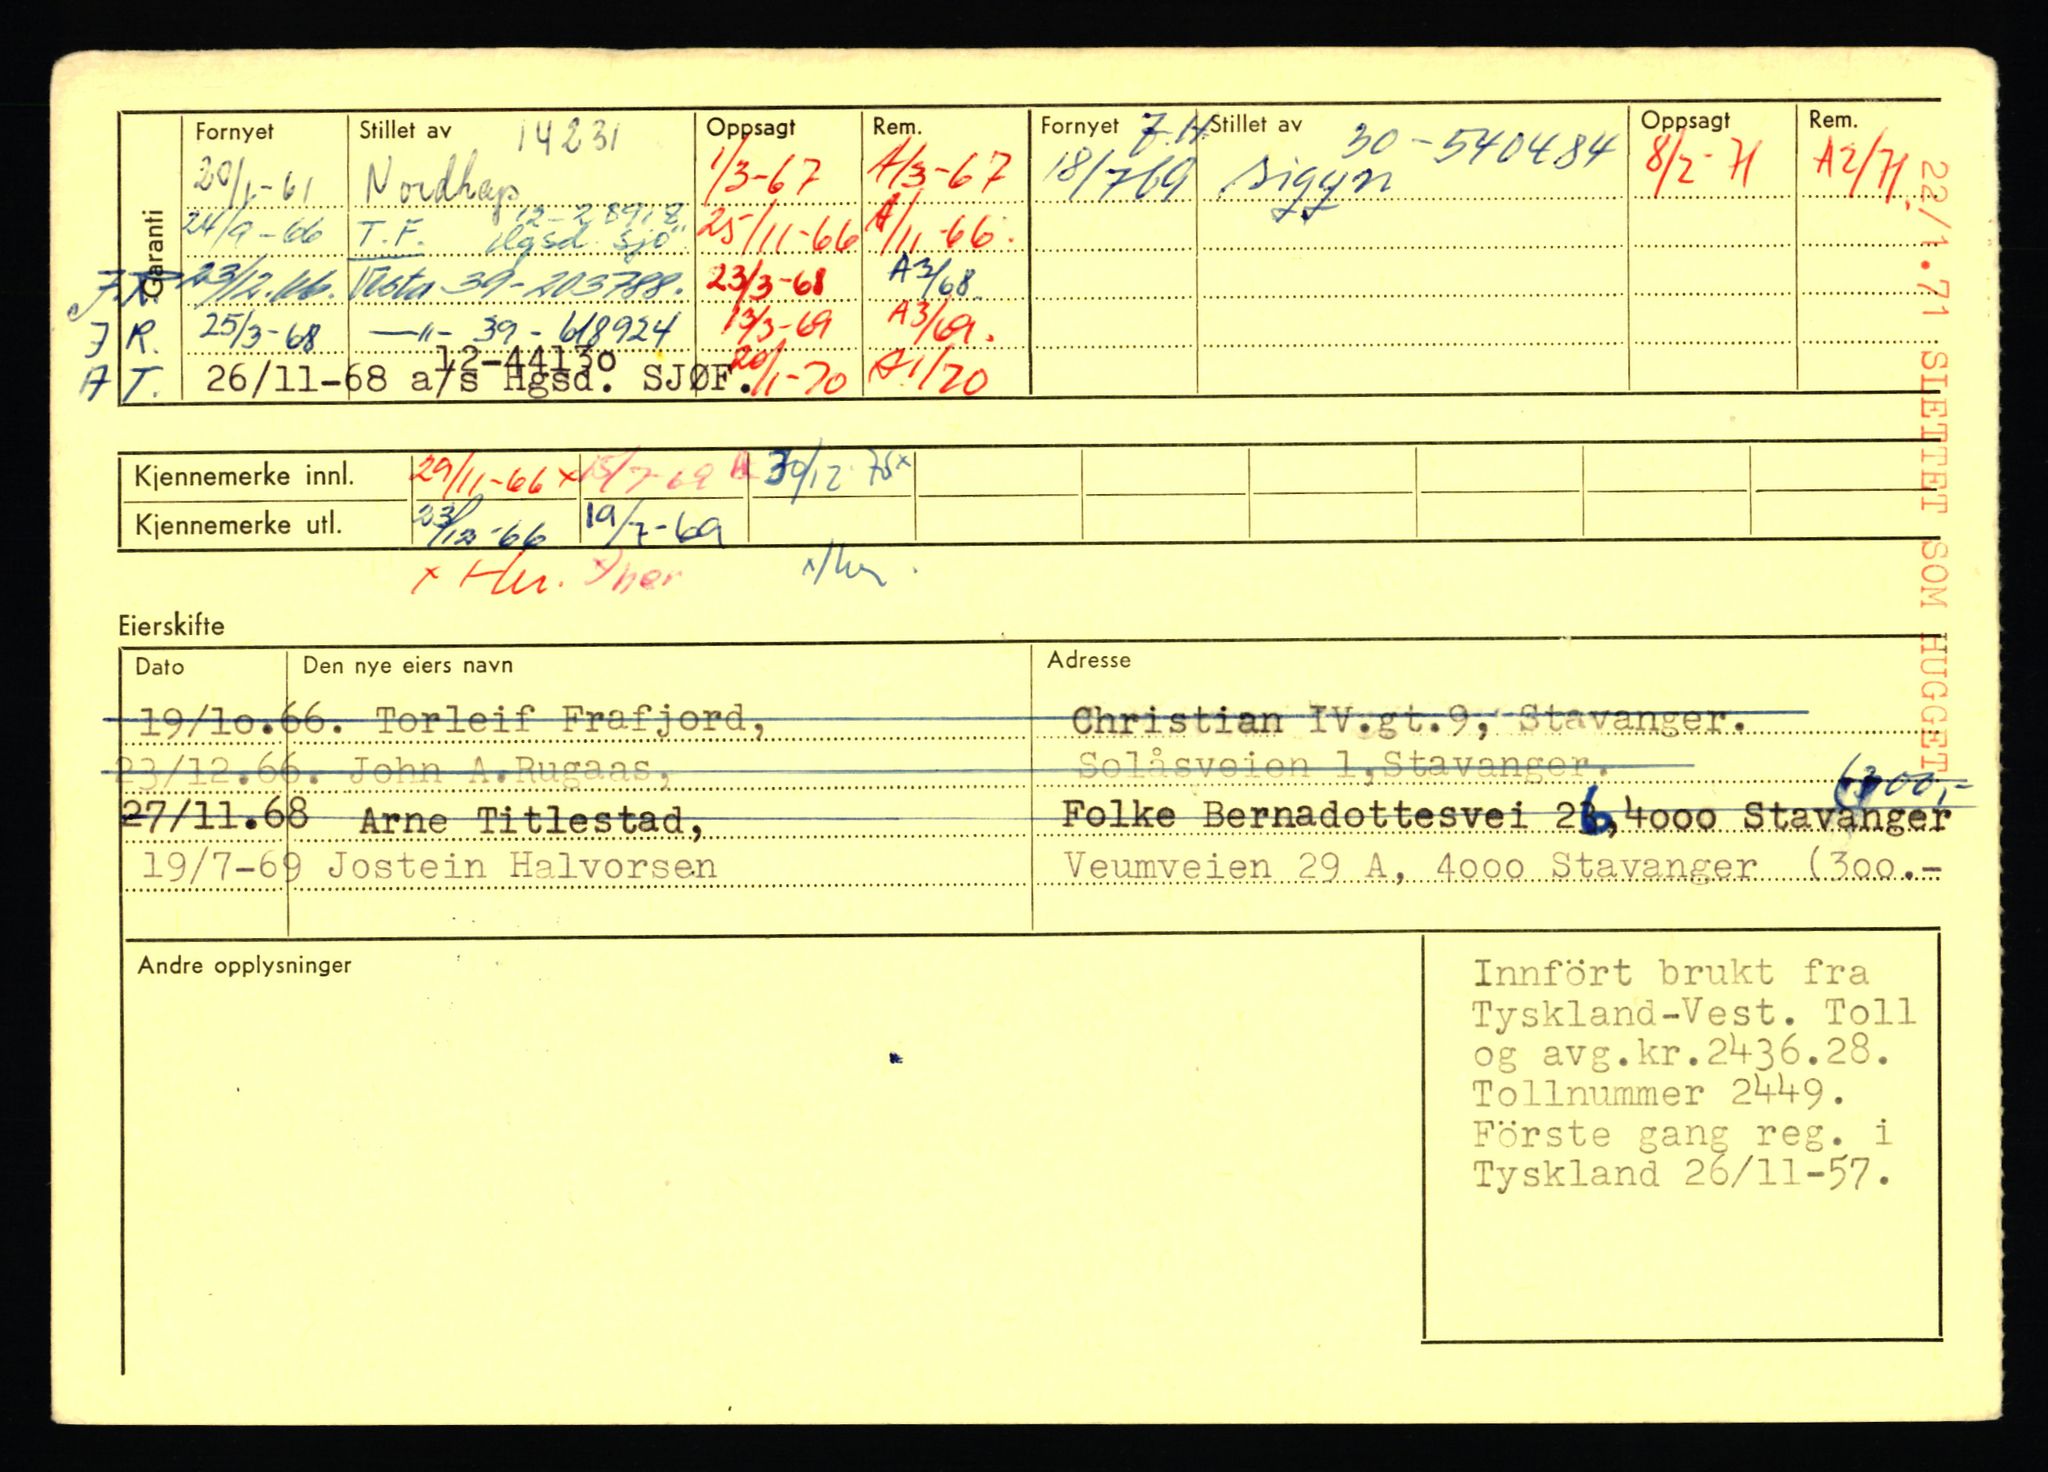 Garanti
Fornyet Stillet av 14231 Oppsagt Rem. Fornyet J.H. Stillet av 30-540484 Oppsagt Rem.
20/1-61 Nordhaps 1/3-67 A/3-67 18/7 69 Sigyn 8/2-71 A2/71.
12-28918
24/9-66 T.F. Hgsd. Sjø 25/11-66 A/11-66.
J.R. 23/12.66. Vesta 39-203788. 23/3-68 A3/68.
J R. 25/3-68 —"— 39-618924 13/3-69 A3/69.
12-44130
A T. 26/11-68 a/s Hgsd. SJØF. 20/1-70 A1/70
22/1.71 SLETTET SOM HUGGET
Kjennemerke innl. 29/11-66 x 15/7-69 30/12-70x
Kjennemerke utl. 23/12-66 19/7-69
x Her. x her x/her.
Eierskifte
Dato Den nye eiers navn Adresse
19/10.66. Torleif Frafjord, Christian IV.gt.9, Stavanger.
23/12.66. John A.Rugaas, Solåsveien 1,Stavanger.
27/11.68 Arne Titlestad, Folke Bernadottesvei 2b,4000 Stavanger
19/7-69 Jostein Halvorsen Veumveien 29 A, 4000 Stavanger (300.-
Andre opplysninger
Innfört brukt fra
Tyskland-Vest. Toll
og avg.kr.2436.28.
Tollnummer 2449.
Förste gang reg. i
Tyskland 26/11-57.